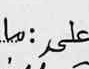 على :ما